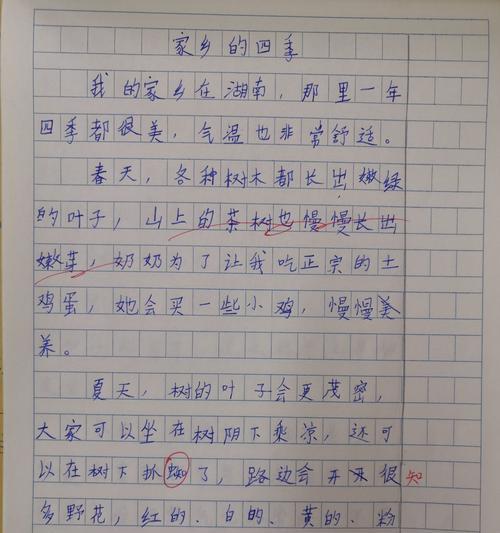 家乡的四季
我的家乡在湖南，那里一年
四季都很美，气温也非常舒适。
春天，各种树木都长出嫩绿
的叶子，山上的茶树也慢慢长出
嫩芽，奶奶为了让我吃正宗的土
鸡蛋，她会买一些小鸡，慢慢美
养。
夏天，树的叶子会更茂密，
大家可以坐在树阴下乘凉，还可
以在树下抓蜘了，路边会开很知
多野花，红的、白的、黄的、粉